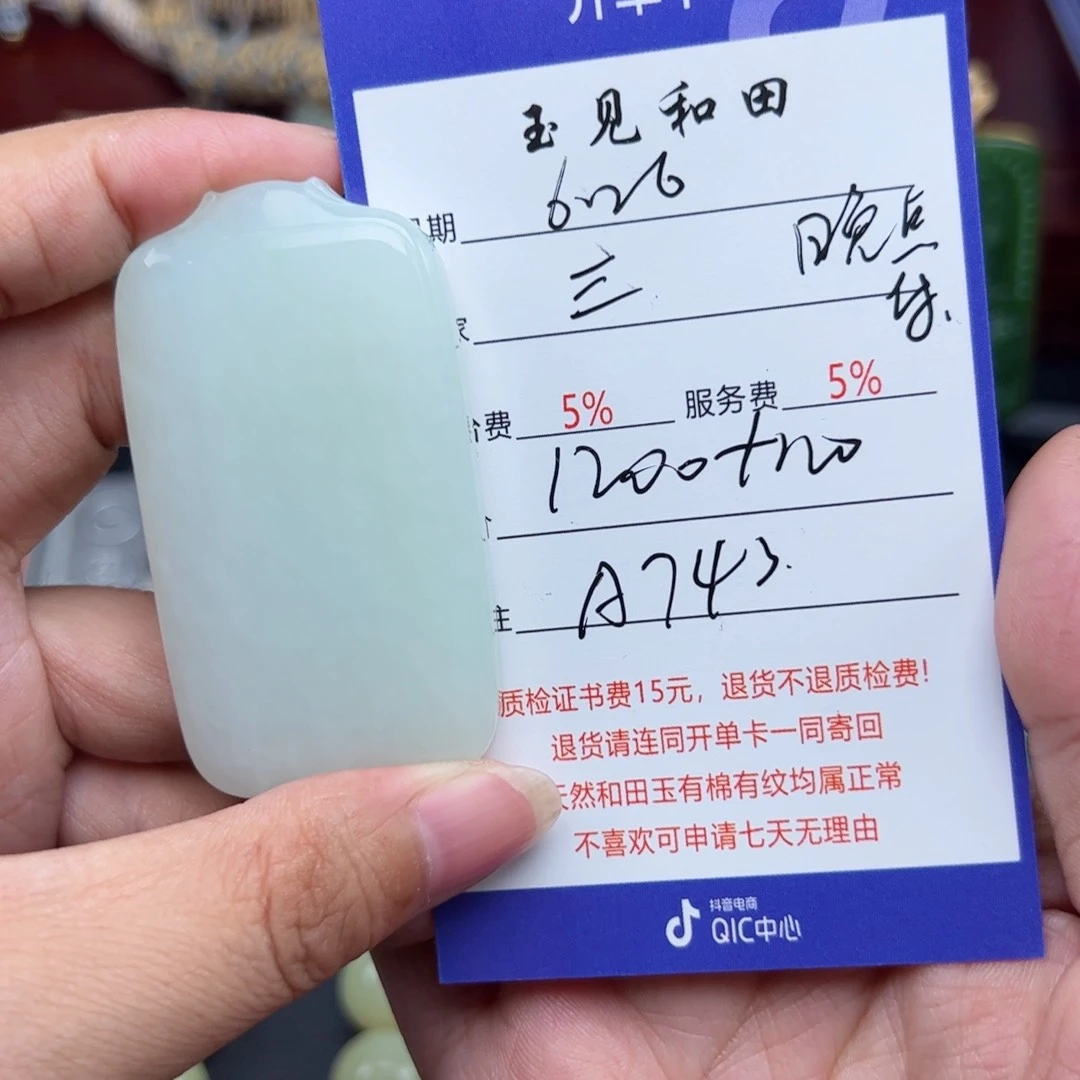 开单卡
玉见和田
日期 6026
家 三 日晚点
价费 5% 服务费 5%
价 1200+120
注 A743.
质检证书费15元，退货不退质检费！
退货请连同开单卡一同寄回
天然和田玉有棉有纹均属正常
不喜欢可申请七天无理由
抖音电商
QIC中心